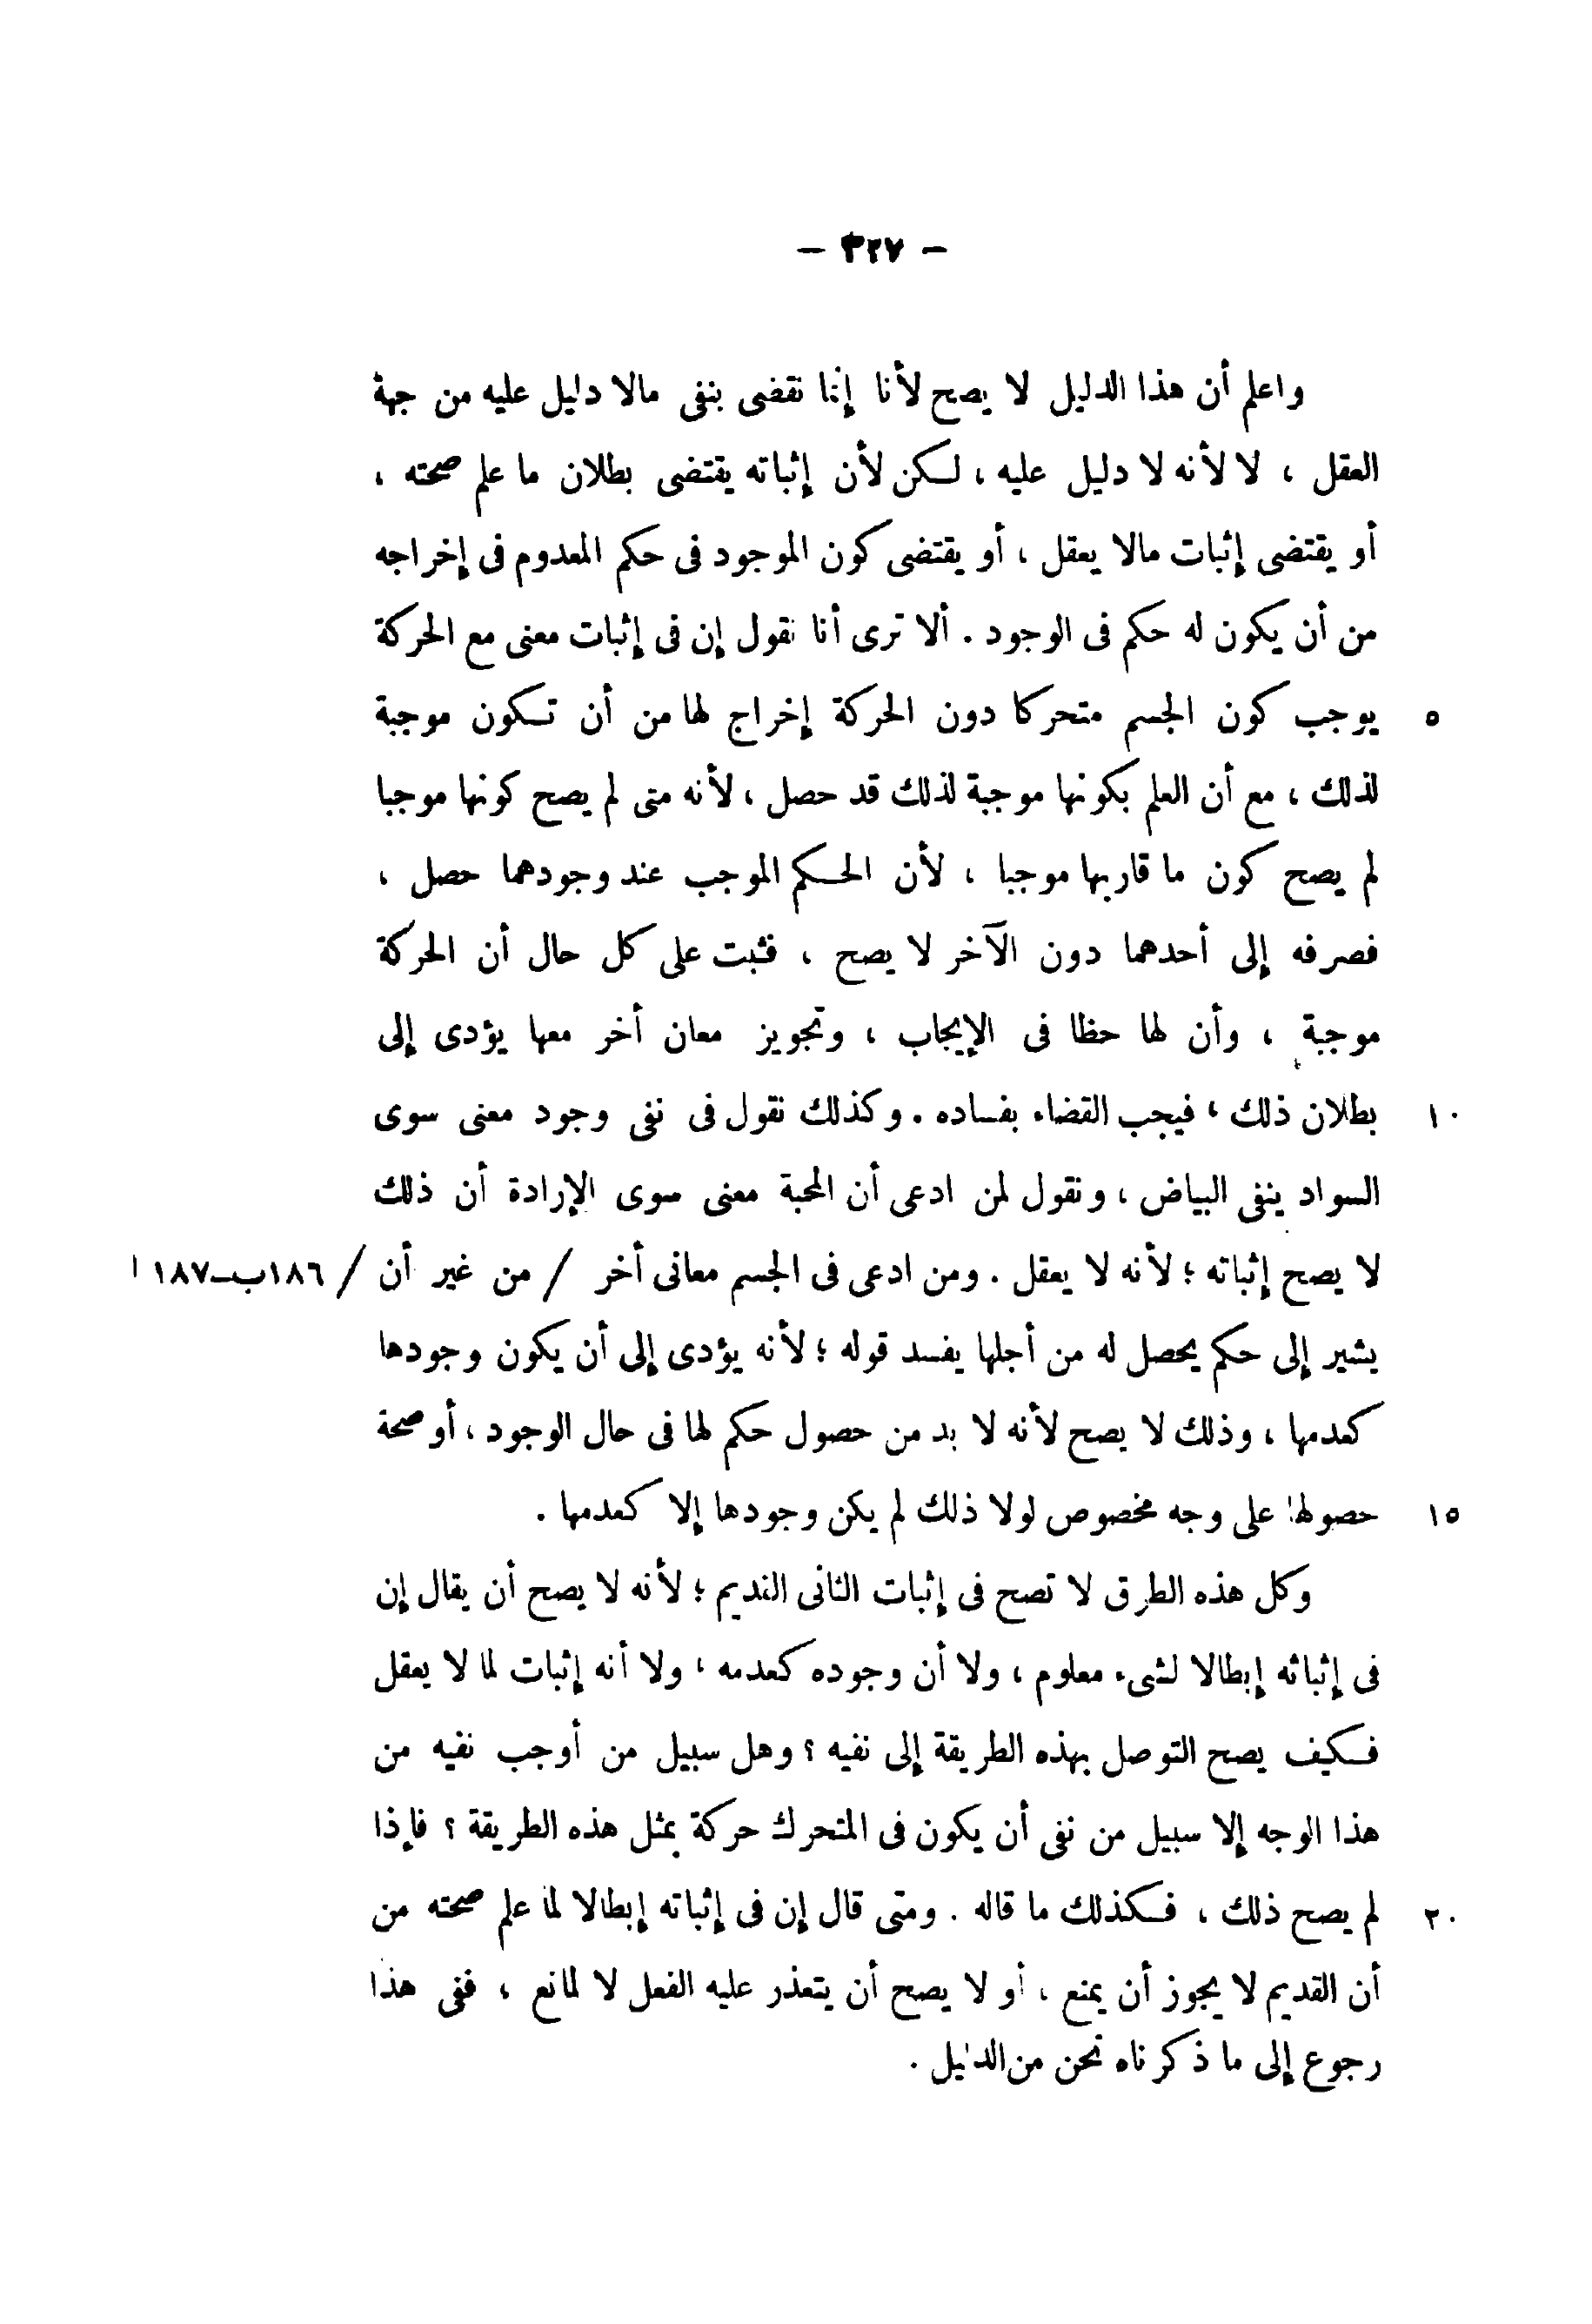 — ٣٢٧ —
واعلم أن هذا الدليل لا يصح لأنا إنما نقضى بنفى مالا دليل عليه من جهة
العقل ، لا لأنه لا دليل عليه ، لكن لأن إثباته يقتضى بطلان ما علم صحته ،
أو يقتضى إثبات مالا يعقل ، أو يقتضى كون الموجود فى حكم المعدوم فى إخراجه
من أن يكون له حكم فى الوجود . ألا ترى أنا نقول إن فى إثبات معنى مع الحركة
٥ يوجب كون الجسم متحركا دون الحركة إخراج لها من أن تكون موجبة
لذلك ، مع أن العلم بكونها موجبة لذلك قد حصل ، لأنه متى لم يصح كونها موجبا
لم يصح كون ما قاربها موجبا ، لأن الحكم الموجب عند وجودهما حصل ،
فصرفه إلى أحدهما دون الآخر لا يصح ، فثبت على كل حال أن الحركة
موجبة ، وأن لها حظا فى الإيجاب ، وتجويز معان أخر معها يؤدى إلى
١٠ بطلان ذلك ، فيجب القضاء بفساده . وكذلك نقول فى نفى وجود معنى سوى
السواد ينفى البياض ، ونقول لمن ادعى أن المحبة معنى سوى الإرادة أن ذلك
لا يصح إثباته ؛ لأنه لا يعقل . ومن ادعى فى الجسم معانى أخر / من غير أن / ١٨٦ب-١٨٧ ا
يشير إلى حكم يحصل له من أجلها يفسد قوله ؛ لأنه يؤدى إلى أن يكون وجودها
كعدمها ، وذلك لا يصح لأنه لا بد من حصول حكم لها فى حال الوجود ، أو صحة
١٥ حصولها على وجه مخصوص لولا ذلك لم يكن وجودها إلا كعدمها .
وكل هذه الطرق لا تصح فى إثبات الثانى القديم ؛ لأنه لا يصح أن يقال إن
فى إثباته إبطالا لشىء معلوم ، ولا أن وجوده كعدمه ، ولا أنه إثبات لما لا يعقل
فكيف يصح التوصل بهذه الطريقة إلى نفيه ؟ وهل سبيل من أوجب نفيه من
هذا الوجه إلا سبيل من نفى أن يكون فى المتحرك حركة بمثل هذه الطريقة ؟ فإذا
٢٠ لم يصح ذلك ، فكذلك ما قاله . ومتى قال إن فى إثباته إبطالا لما علم صحته من
أن القديم لا يجوز أن يمنع ، أو لا يصح أن يتعذر عليه الفعل لا لمانع ، ففى هذا
رجوع إلى ما ذكرناه نحن من الدليل .